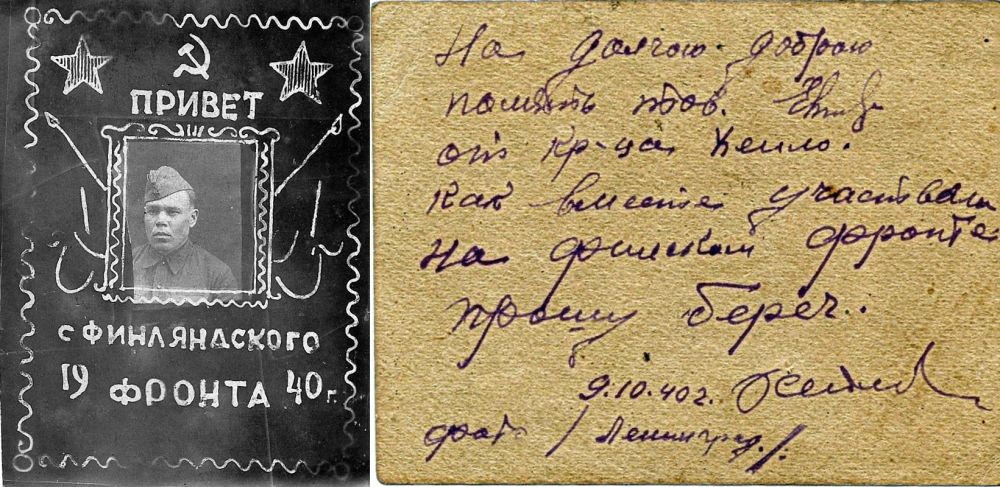 ПРИВЕТ
с ФИНЛЯНДСКОГО
19 ФРОНТА 40 г.
На долгою добрую
память тов.
от кр-ца
как вместе участвовали
на финском фронте
прошу береч..
9.10.40 г.
фото / Ленинград./.